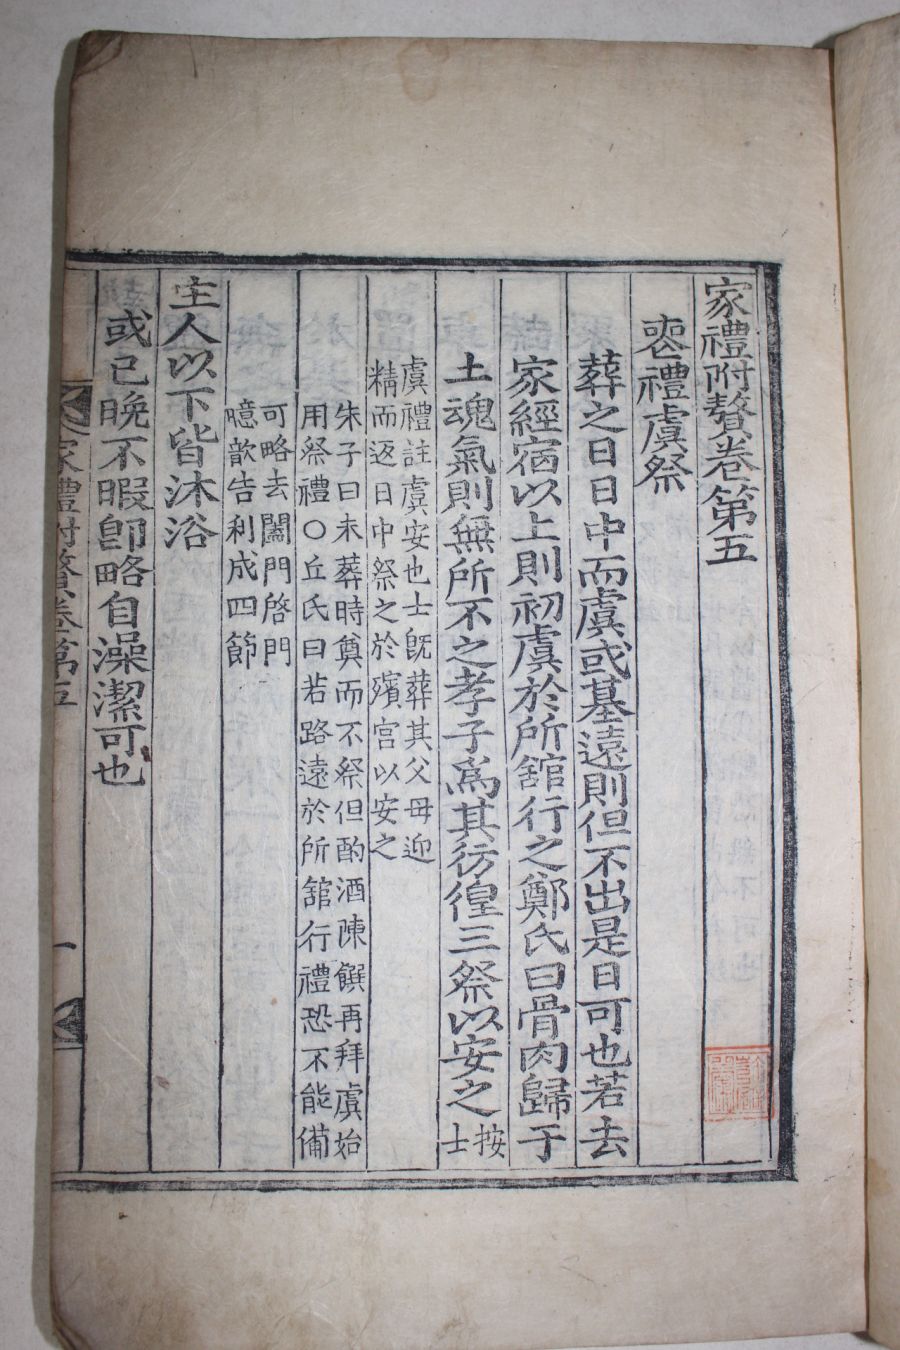 家禮附贅卷第五
喪禮虞祭
葬之日日中而虞或墓遠則但不出是日可也若去
家經宿以上則初虞於所舘行之鄭氏曰骨肉歸于
土魂氣則無所不之孝子爲其彷徨三祭以安之按士
虞禮註虞安也士旣葬其父母迎
精而返日中祭之於殯宮以安之
朱子曰未葬時奠而不祭但酌酒陳饌再拜虞始
用祭禮○丘氏曰若路遠於所舘行禮恐不能備
可略去闔門啓門
噫歆告利成四節
主人以下皆沐浴
或已晩不暇卽略自澡潔可也
家禮附贅卷第五
一